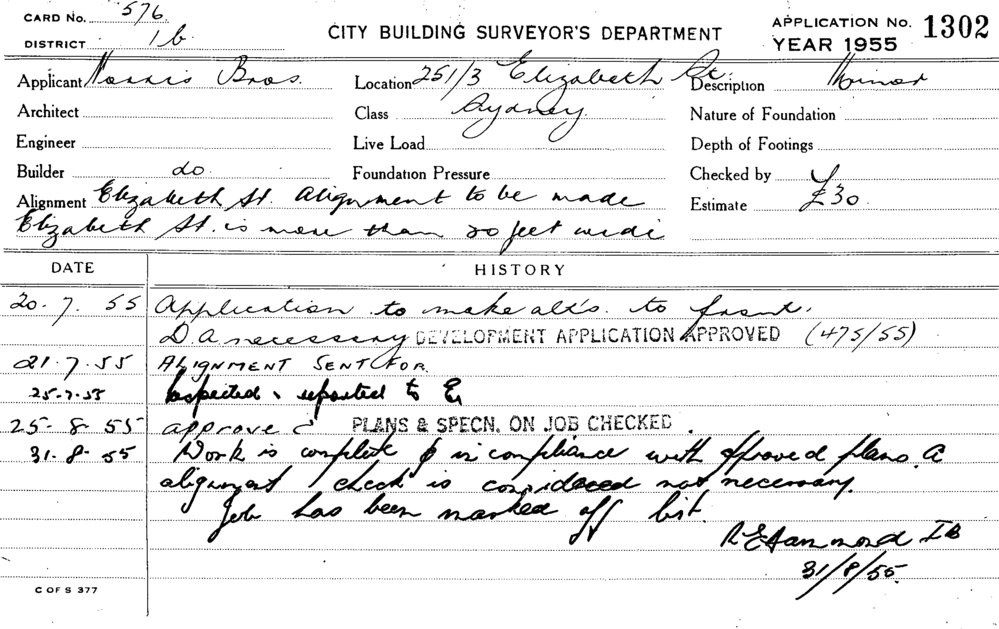 CARD No. 576
DISTRICT 1b
CITY BUILDING SURVEYOR'S DEPARTMENT
APPLICATION No. 1302
YEAR 1955
Applicant Norris Bros. Location 251/3 Elizabeth St. Description Minor
Architect Class Sydney. Nature of Foundation
Engineer Live Load Depth of Footings
Builder do Foundation Pressure Checked by
Alignment Elizabeth St. Alignment to be made Estimate £30
Elizabeth St. is more than 20 feet wide
DATE HISTORY
20.7.55 Application to make alt's. to front.
D A necessary DEVELOPMENT APPLICATION APPROVED (475/55)
21.7.55 ALIGNMENT SENT FOR
25-7-55 Inspected & reported to
25-8-55 approved PLANS & SPECN. ON JOB CHECKED.
31.8.55 Work is complete & in compliance with approved plans. A
alignment check is considered not necessary.
Job has been marked off list.
R E Hammond I B
31/8/55.
C OF S 377